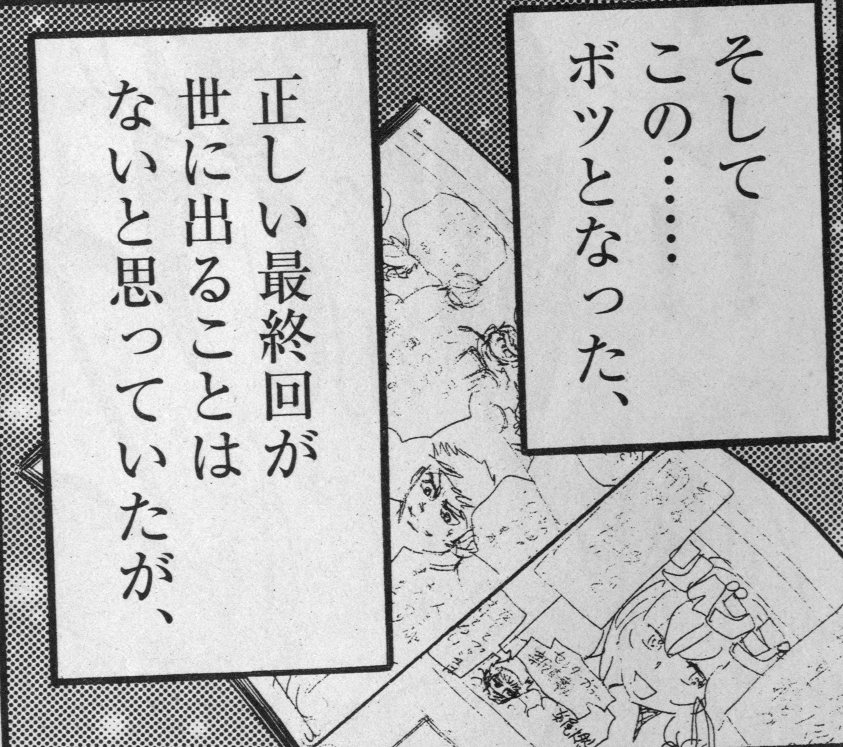 そして
この……
ボツとなった、
正しい最終回が
世に出ることは
ないと思っていたが、